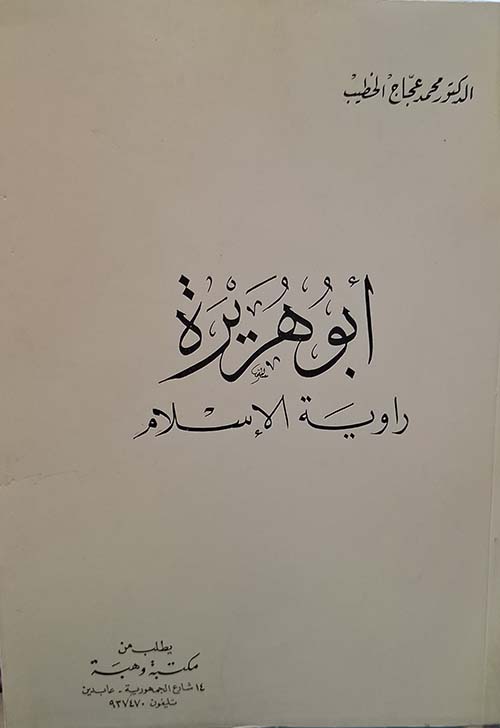 الدكتور محمد عجاج الخطيب
أبو هُرَيْرَة
راوية الإسلام
يطلب من
مكتبة وهبة
١٤ شارع الجمهورية - عابدين
تليفون ٩٣٧٤٧٠